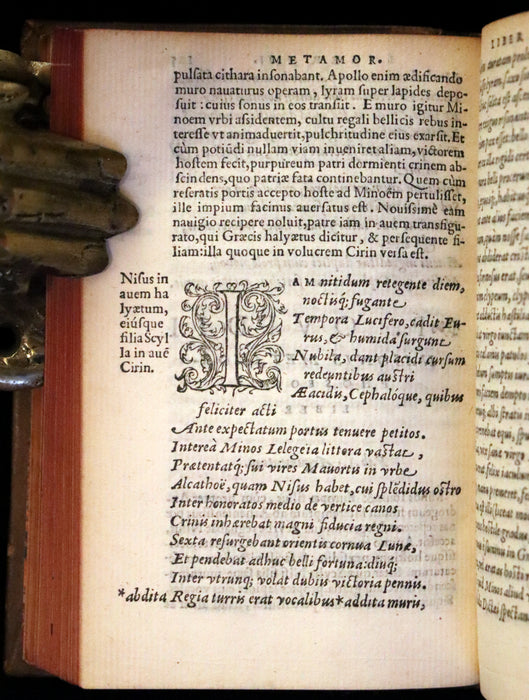 METAMOR.
pulsata cithara insonabant. Apollo enim ædificando
muro nauaturus operam, lyram super lapides depo-
suit: cuius sonus in eos transiit. E muro igitur Mi-
noem vrbi assidentem, cultu regali bellicis rebus in-
teresse vt animaduertit, pulchritudine eius exarsit. Et
cùm potiūdi nullam viam inueniret aliam, victorem
hostem fecit, purpureum patri dormienti crinem ab-
scindens, quo patriæ fata continebantur. Quem cùm
reseratis portis accepto hoste ad Minoëm pertulisset,
ille impium facinus auersatus est. Nouissimè eam
nauigio recipere noluit, patre iam in auem transfigu-
rato, qui Græcis halyætus dicitur, & persequente fi-
liam: illa quoque in volucrem Cirin versa est.
Nisus in
auem ha
lyætum,
eiúsque
filia Scyl
la in auē
Cirin.
IAM nitidum retegente diem,
noctisq; fugante
Tempora Lucifero, cadit Eu-
rus, & humida surgunt
Nubila, dant placidi cursum
redeuntibus austri
Æacidis, Cephalóque, quibus
feliciter acti
Ante expectatum portus tenuere petitos.
Interea Minos Lelegeia littora vastat,
Prætentatq; sui vires Mauortis in vrbe
Alcathoë, quam Nisus habet, cui splēdidus ostro
Inter honoratos medio de vertice canos
Crinis inhærebat magni fiducia regni.
Sexta resurgebant orientis cornua Lunæ,
Et pendebat adhuc belli fortuna: diuq;
Inter vtrunq; volat dubiis victoria pennis.
*abdita Regia turris erat vocalibus *addita muris,
LIBER